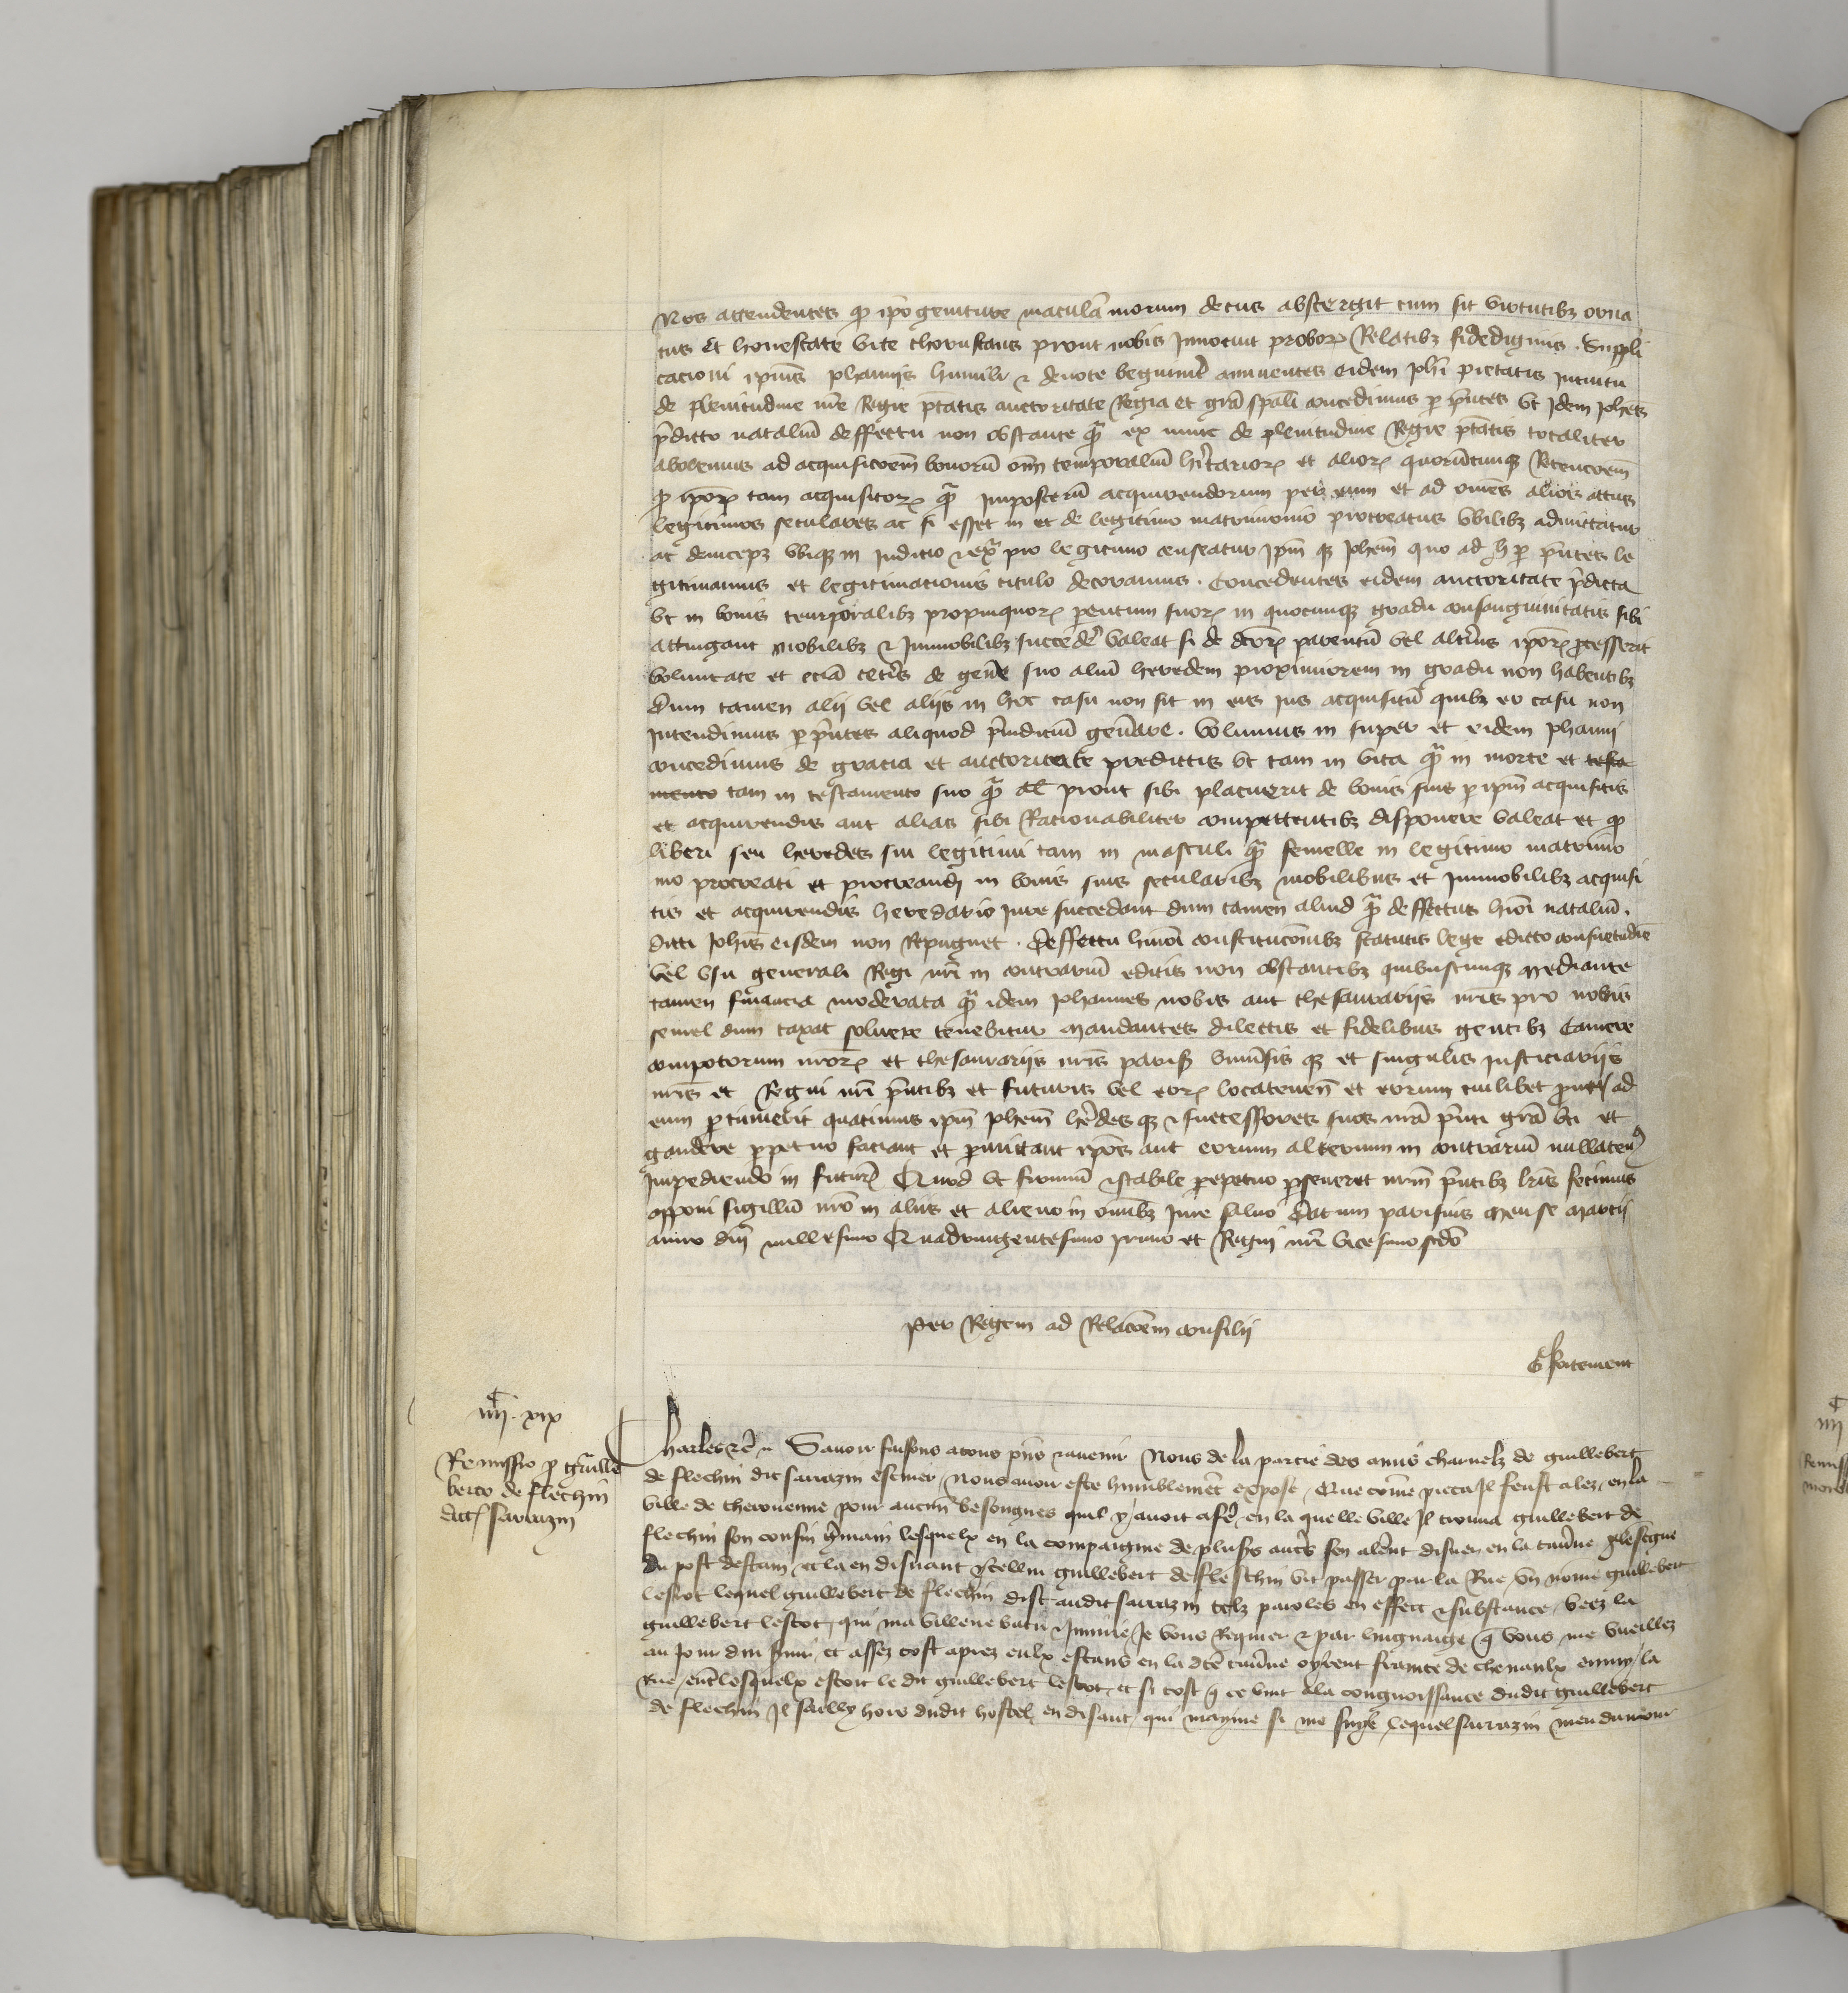 Nos attendentes qp ipo geniture maculã morum decus abstergit cum sit virtutibz orna
tus et honestate vite chorustans prout nobis Innotuit probor Relatibz fidedignis . Suppli
cacioni ipius Johannis humili et devote benignit annuentes eidem Johi pietatis Intuitu
de plenitudine nre Regie ptatis auctoritate Regia et gra spali concedimus p pntes vt Idem Johes
pdicto nataliu deffectu non obstante qm ex nunc de plenitudine Regie ptatis totaliter
abolemus ad acquisicoem bonoru oim temporaliu hitarior et alior quorucunqz Retencoem
qz ipor tam acquisitor qm imposteru acquirendorum per eum et ad omes alios actus
legitimos seculares ac si esset in et de legitimo matrimonio procreatus vbilibz admittatur
ac deincepz vbiqz in Judicio et exa pro legitimo censeatur Ipm qz Johem quo ad h p pntes le
gitimamus et legitimationis titulo decoramus . Concedentes eidem auctoritate pdicta
vt in bonis temporalibz propinquor pentum suor in quocunqz gradu consanguinitatis sibi
attingant mobilibz et Immobilibz succede valeat si de dcor parentu vel altius ipor pcesserit
voluntate et ecia cetis de gene suo aliu heredem proximiorem in gradu non habentibz
Dum tamen alij vel alijs in hoc casu non sit in eis ius acquisitu quibz eo casu non
Intendimus p pntes aliquod piudiciu genare . Volumus in super et eidem Johanni
concedimus de gracia et auctoritate predictis vt tam in vita qm in morte et testa
mento tam in testamento suo qm al prout sibi placuerit de bonis suis p ipm acquisitis
et acquirendis aut alias sibi Rationabiliter competentibz disponere valeat et qp
liberi seu heredes sui legitimi tam in masculi qm femelle in legitimo matrimo
nio procreati et procreandi in bonis suis secularibz mobilibus et Immobilibz acquisi
tis et acquirendis heredario Jure succedant dum tamen aliud qm deffectus hmoi nataliu .
dicti Johis eisdem non Repugnet . Deffectu hmoi constitucoibz statutis lege edicto consuetudie
vel vsu generali Regi nri in contrariu editis non obstantibz quibuscunqz mediante
tamen financia moderata qm idem Johannes nobis aut thesaurarijs nris pro nobis
semel dum taxat soluere tenebitur Mandantes dilectis et fidelibus gentibz Camere
compotorum nror et thesaurarijs nris parisz vniusis qz et singulis Justiciarijs
nris et Regni nri pntibz et futuris vel eor locatenen et eorum cuilibet prout ad
eum ptinuerit quatinus ipm Johem hedes qz et successores suos nra pnti gra vti et
gaudere ppetuo faciant et pmittant ipos aut eorum alterum in contrariu nullaten
Impediendo in futur Quod vt firmum et stabile perpetuo pseueret nrm pntibz lris fecimus
apponi sigillu nro in aliis et alieno in omibz Jure saluo Datum parisius Mense Marcij
anno dni millesimo Quadringentesimo primo et Regni nri vicesimo scdo
Per Regem ad Relacoem consilij
G fortement
iiijc . xix
Remissio p guille
berto de flechin
dict sarrazin
Charles etc Sauoir faisons atous pns et auenir Nous de la partie des amis charnelz de guillebert
de flechin dit sarrazin escuier Nous auoir este humblemet expose / Que come pieca Il feust alez en la
ville de therouenne pour aucun besongnes quil y auoit afe en la quelle ville Il trouua guillebert de
flechin son cousin gmain lesquelx en la compaignie de plusrs autrs sen alerent disner en la tauerne
du post destam et la en disnant ycellui guillebert de fleschin vit passer par la Rue vn nome guillebert
lescot lequel guillebert de flechin dist audit sarrazin telz paroles en effect et substance / veez la
guillebert lescot qui ma villene batu et Iniurie Je vous Requier et par lingnaige q vous me vueillez
au Jour dui et assez tost apres eulx estans en la dce tauerne oyrent frainte de cheuaulx emmy la
Rue entre lesquelx estoit le dit guillebert lescot et si tost q ce vint ala congnoissance dudit guillebert
de flechin Il sailly hors dudit hostel en disant qui mayme si me lequel sarrazin